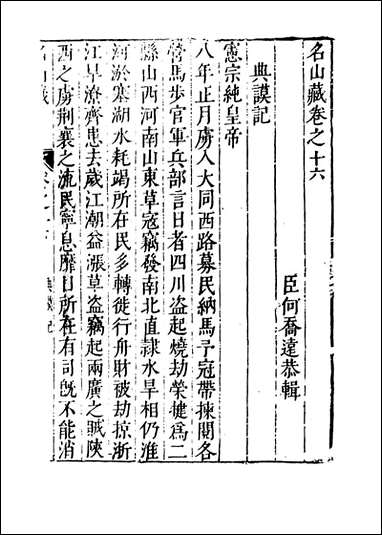 名山藏卷之十六
臣何喬遠恭輯
典謨記
憲宗純皇帝
八年正月虜入大同西路募民納馬予冠帶揀閱各
營馬步官軍兵部言日者四川盗起燒劫榮揵為二
縣山西河南山東草寇竊發南北直隷水旱相仍淮
河淤塞湖水耗竭所在民多轉徙行舟財被劫掠浙
江旱潦齊患去歲江潮益漲草盗竊起兩廣之賊陜
西之虜荆襄之流民寧息靡日所在有司旣不能消
名山藏